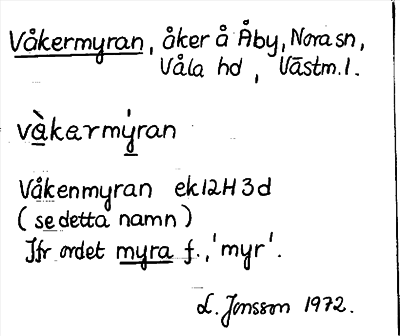 Våkermyran, åker å Åby, Nora sn,
Våla hd, Västm. l.
vàkarmýran
Våkenmyran ek 12H3d
(se detta namn)
Jfr ordet myra f., 'myr'.
L. Jonsson 1972.